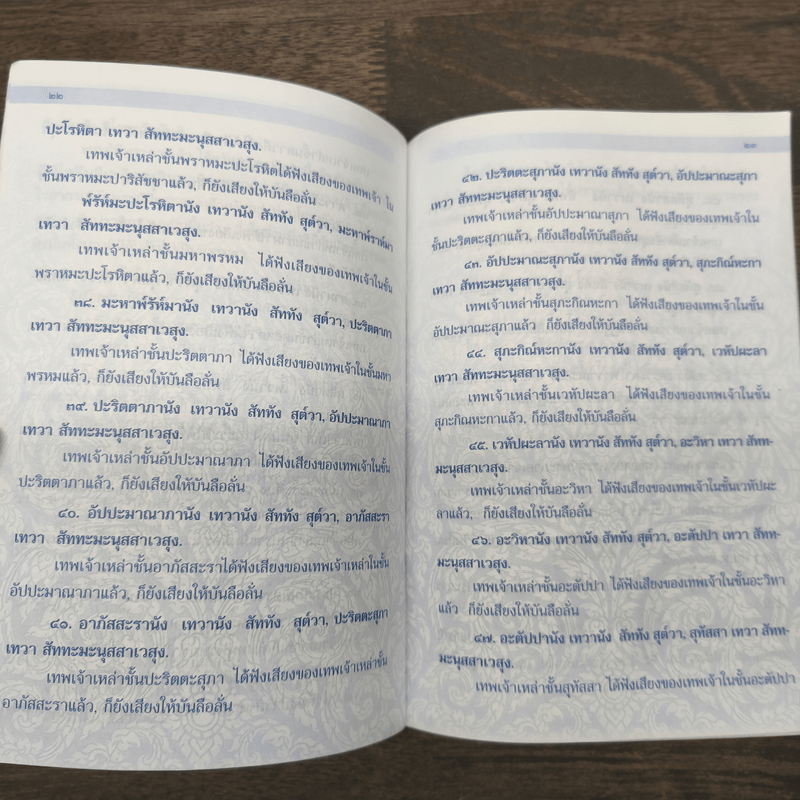 ๒๒
ปะโรหิตา เทวา สัททะมะนุสสาเวสุง.
เทพเจ้าเหล่าชั้นพราหมะปะโรหิตได้ฟังเสียงของเทพเจ้า ใน
ชั้นพราหมะปาริสัชชาแล้ว, ก็ยังเสียงให้บันลือลั่น
พ์รัห์มะปะโรหิตานัง เทวานัง สัททัง สุต์วา, มะหาพ์ราห์มา
เทวา สัททะมะนุสสาเวสุง.
เทพเจ้าเหล่าชั้นมหาพรหม ได้ฟังเสียงของเทพเจ้าในชั้น
พราหมะปะโรหิตาแล้ว, ก็ยังเสียงให้บันลือลั่น
๓๘. มะหาพ์รัห์มานัง เทวานัง สัททัง สุต์วา, ปะริตตาภา
เทวา สัททะมะนุสสาเวสุง.
เทพเจ้าเหล่าชั้นปะริตตาภา ได้ฟังเสียงของเทพเจ้าในชั้นมหา
พรหมแล้ว, ก็ยังเสียงให้บันลือลั่น
๓๙. ปะริตตาภานัง เทวานัง สัททัง สุต์วา, อัปปะมาณาภา
เทวา สัททะมะนุสสาเวสุง.
เทพเจ้าเหล่าชั้นอัปปะมาณาภา ได้ฟังเสียงของเทพเจ้าในชั้น
ปะริตตาภาแล้ว, ก็ยังเสียงให้บันลือลั่น
๔๐. อัปปะมาณาภานัง เทวานัง สัททัง สุต์วา, อาภัสสะรา
เทวา สัททะมะนุสสาเวสุง.
เทพเจ้าเหล่าชั้นอาภัสสะราได้ฟังเสียงของเทพเจ้าเหล่าในชั้น
อัปปะมาณาภาแล้ว, ก็ยังเสียงให้บันลือลั่น
๔๑. อาภัสสะรานัง เทวานัง สัททัง สุต์วา, ปะริตตะสุภา
เทวา สัททะมะนุสสาเวสุง.
เทพเจ้าเหล่าชั้นปะริตตะสุภา ได้ฟังเสียงของเทพเจ้าเหล่าชั้น
อาภัสสะราแล้ว, ก็ยังเสียงให้บันลือลั่น
๒๓
๔๒. ปะริตตะสุภานัง เทวานัง สัททัง สุต์วา, อัปปะมาณะสุภา
เทวา สัททะมะนุสสาเวสุง.
เทพเจ้าเหล่าชั้นอัปปะมาณาสุภา ได้ฟังเสียงของเทพเจ้าใน
ชั้นปะริตตะสุภาแล้ว, ก็ยังเสียงให้บันลือลั่น
๔๓. อัปปะมาณะสุภานัง เทวานัง สัททัง สุต์วา, สุภะกิณ์หะกา
เทวา สัททะมะนุสสาเวสุง.
เทพเจ้าเหล่าชั้นสุภะกิณหะกา ได้ฟังเสียงของเทพเจ้าในชั้น
อัปปะมาณะสุภาแล้ว ก็ยังเสียงให้บันลือลั่น
๔๔. สุภะกิณ์หะกานัง เทวานัง สัททัง สุต์วา, เวหัปผะลา
เทวา สัททะมะนุสสาเวสุง.
เทพเจ้าเหล่าชั้นเวหัปผะลา ได้ฟังเสียงของเทพเจ้าในชั้น
สุภะกิณหะกาแล้ว, ก็ยังเสียงให้บันลือลั่น
๔๕. เวหัปผะลานัง เทวานัง สัททัง สุต์วา, อะวิหา เทวา สัทท-
มะนุสสาเวสุง.
เทพเจ้าเหล่าชั้นอะวิหา ได้ฟังเสียงของเทพเจ้าในชั้นเวหัปผะ
ลาแล้ว, ก็ยังเสียงให้บันลือลั่น
๔๖. อะวิหานัง เทวานัง สัททัง สุต์วา, อะตัปปา เทวา สัทท-
มะนุสสาเวสุง.
เทพเจ้าเหล่าชั้นอะตัปปา ได้ฟังเสียงของเทพเจ้าในชั้นอะวิหา
แล้ว ก็ยังเสียงให้บันลือลั่น
๔๗. อะตัปปานัง เทวานัง สัททัง สุต์วา, สุทัสสา เทวา สัทท-
มะนุสสาเวสุง.
เทพเจ้าเหล่าชั้นสุทัสสา ได้ฟังเสียงของเทพเจ้าในชั้นอะตัปปา